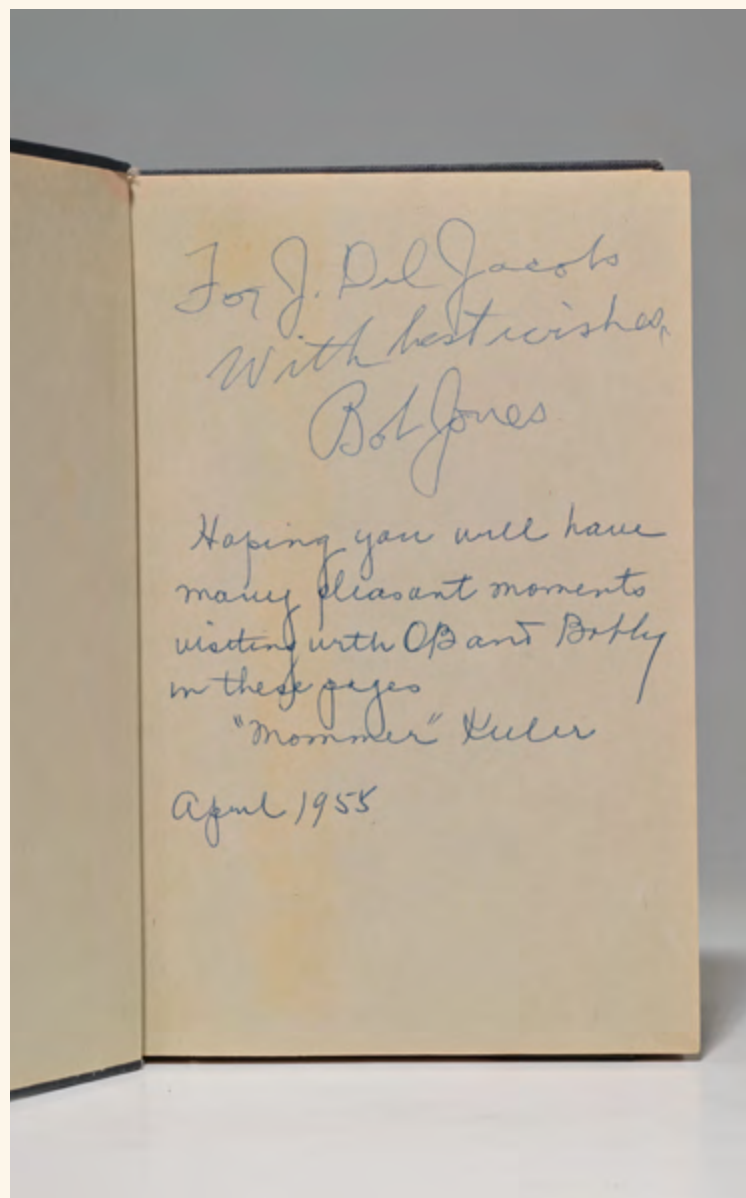 For J. Del Jacobs
With best wishes,
Bob Jones
Hoping you will have
many pleasant moments
visiting with OB and Bobby
in these pages
"Mommer" Keeler
April 1955